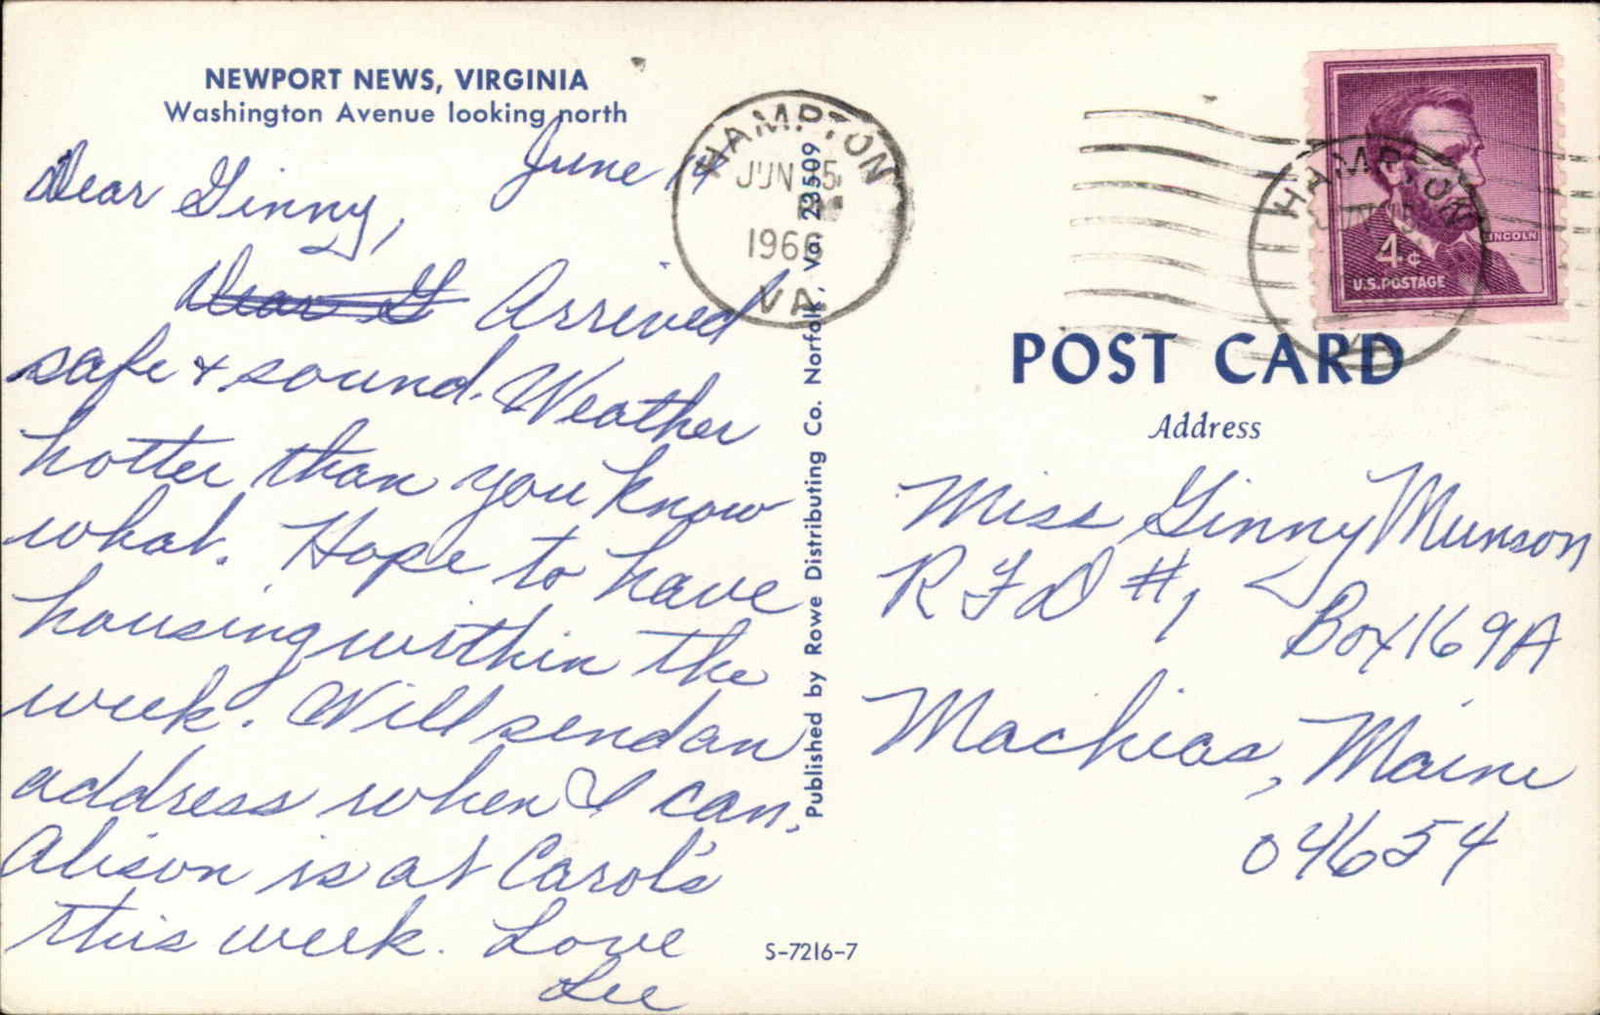 NEWPORT NEWS, VIRGINIA
Washington Avenue looking north
June 14
Dear Ginny,
Dear G Arrived
safe + sound. Weather
hotter than you know
what. Hope to have
housing within the
week. Will send an
address when I can.
Alison is at Carol's
this week. Love
Lee
HAMPTON
JUN 15
1966
VA.
Published by Rowe Distributing Co. Norfolk, Va. 23509
S-7216-7
HAMPTON
LINCOLN
4¢
U.S. POSTAGE
POST CARD
Address
Miss Ginny Munson
RFD #1
Box 169A
Machias, Maine
04654